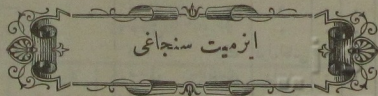 ازميت سنجاغى